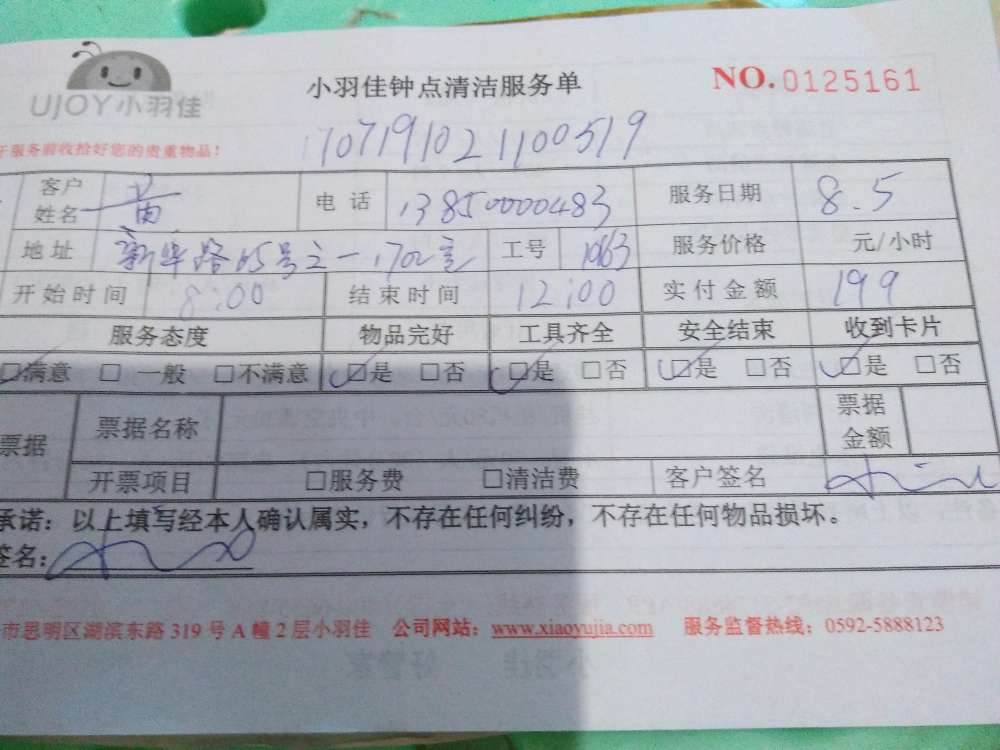 UJOY小羽佳
小羽佳钟点清洁服务单
NO.0125161
服务前收拾好您的贵重物品!
1707191021100519
客户姓名 黄 电话 13850000483 服务日期 8.5
地址 新华路65号之一1702室 工号 1963 服务价格 元/小时
开始时间 8:00 结束时间 12:00 实付金额 199
服务态度 物品完好 工具齐全 安全结束 收到卡片
☑满意 □一般 □不满意 ☑是 □否 ☑是 □否 ☑是 □否 ☑是 □否
票据 票据名称 票据金额
开票项目 □服务费 □清洁费 客户签名
承诺：以上填写经本人确认属实，不存在任何纠纷，不存在任何物品损坏。
签名：
市思明区湖滨东路319号A幢2层小羽佳 公司网站：www.xiaoyujia.com 服务监督热线：0592-5888123